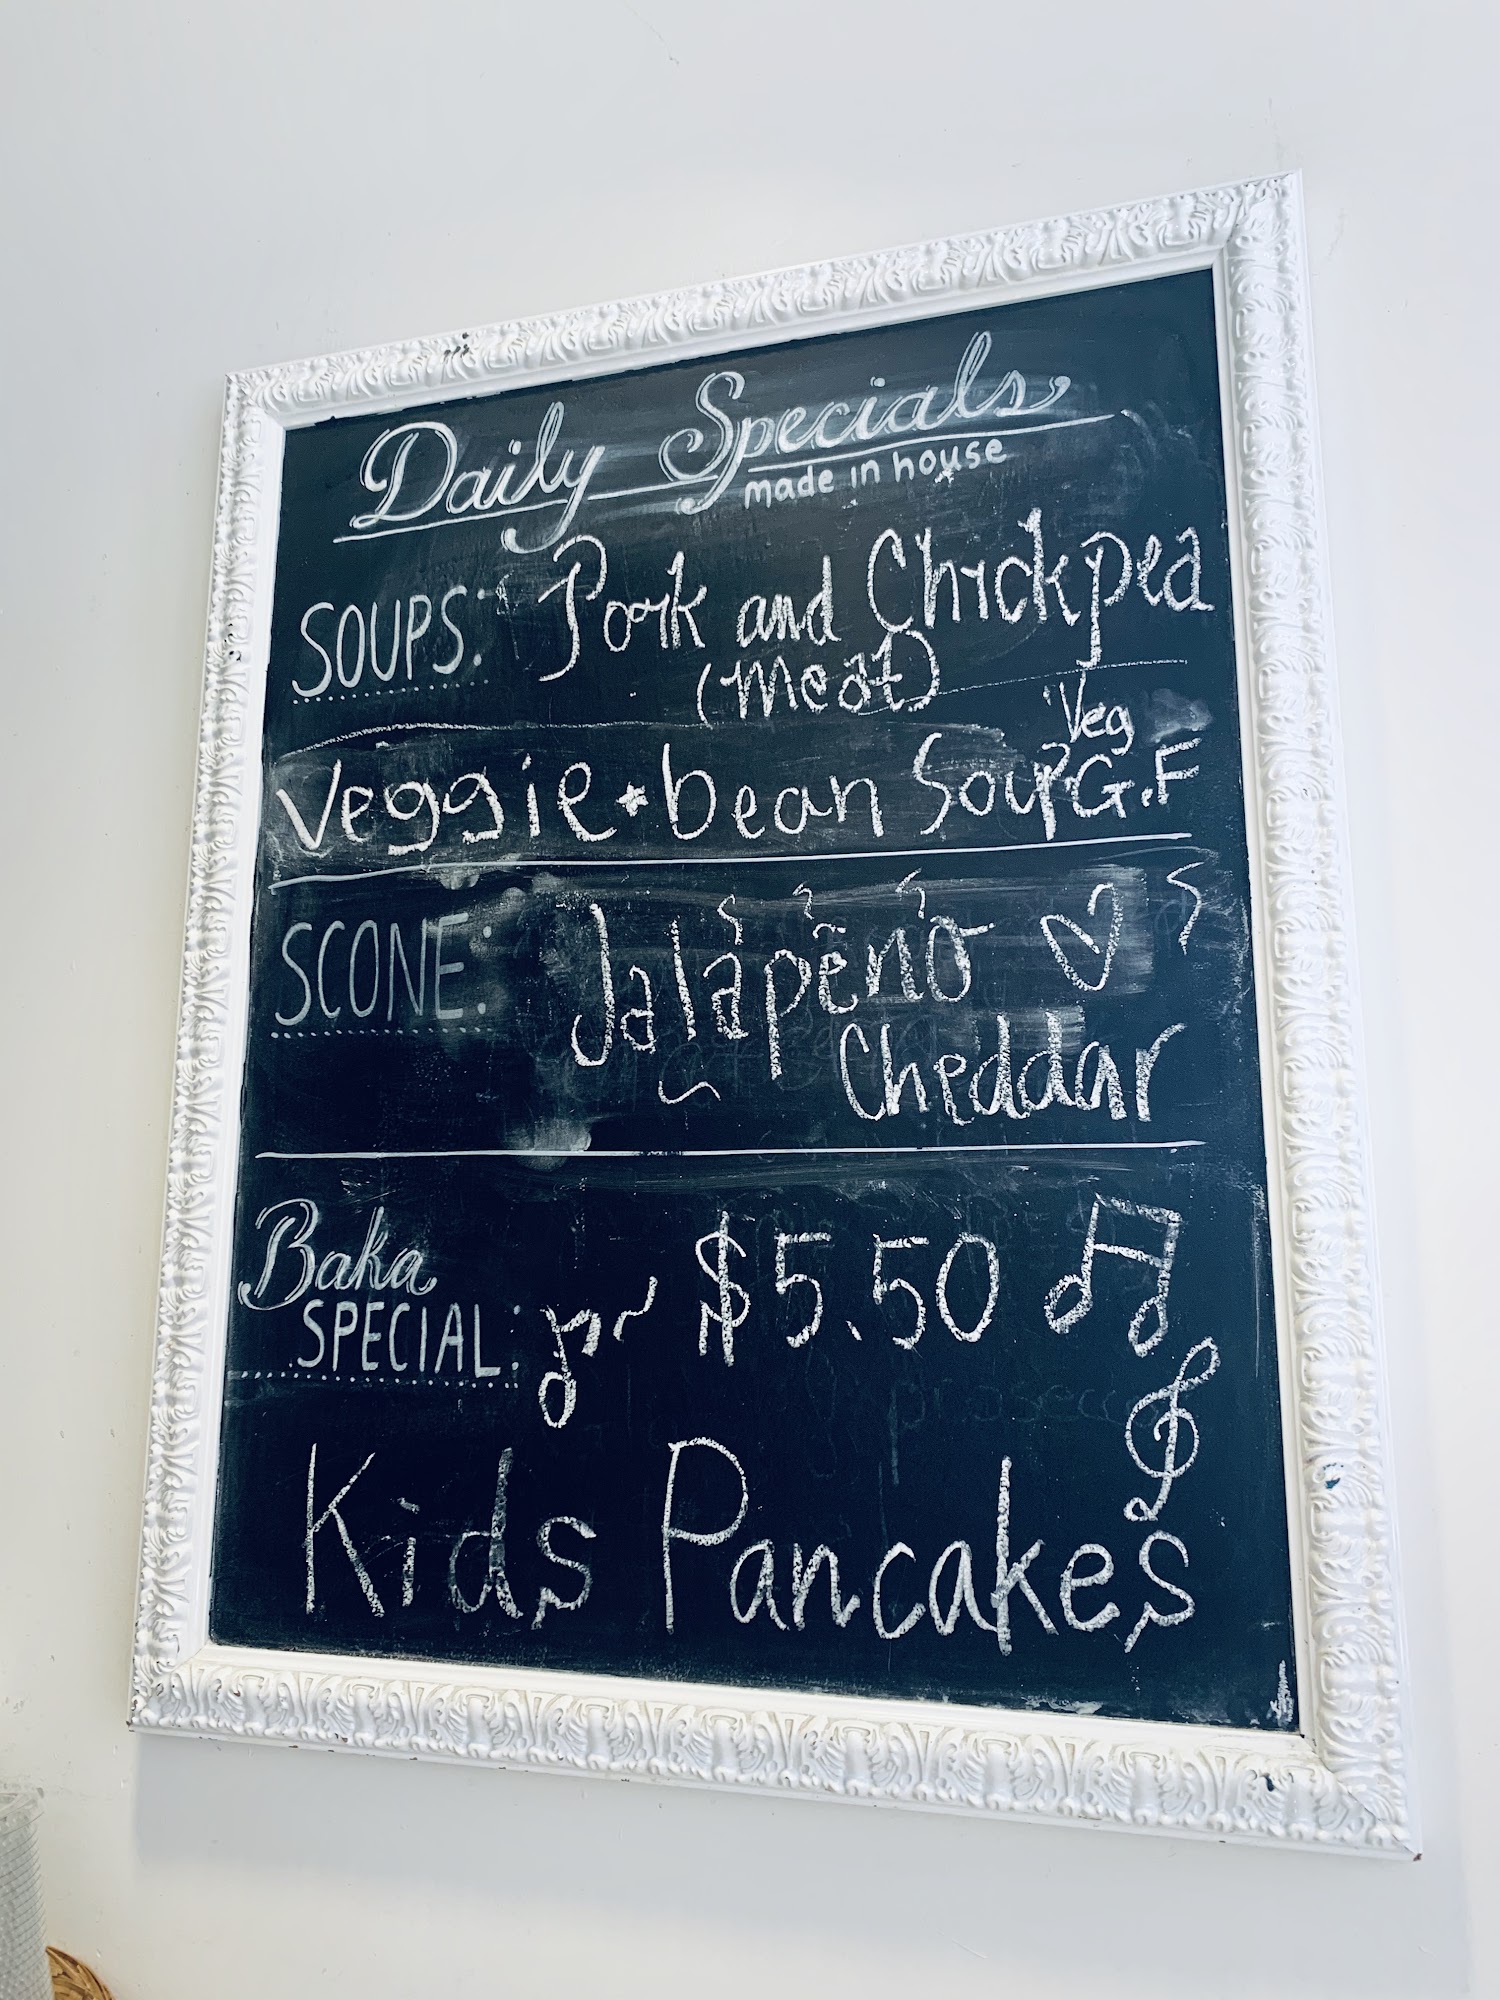 Daily Specials
made in house
SOUPS: Pork and Chickpea
(meat)
Veg
Veggie + bean Soup G.F
SCONE: Jalapeño
Cheddar
Baka
SPECIAL: $5.50
Kids Pancakes